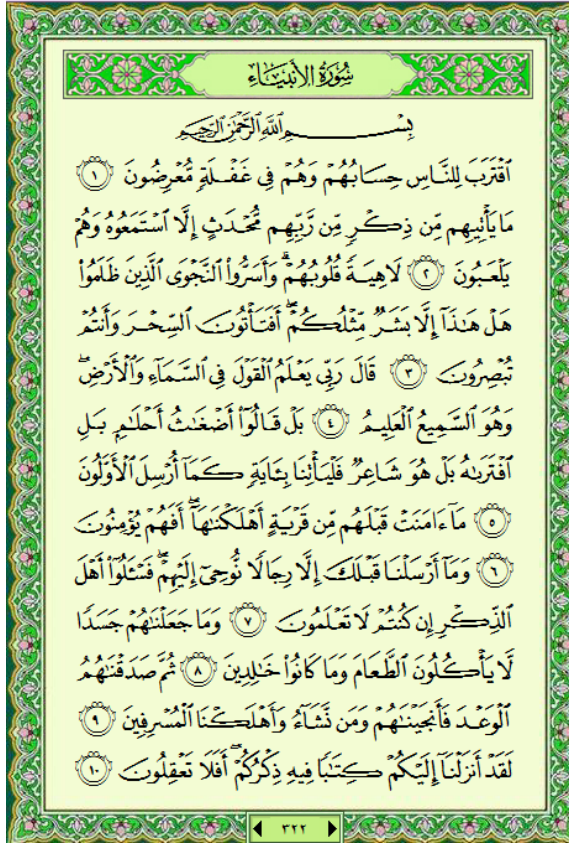 سُورَةُ الأَنبِيَاءِ
بِسْمِ ٱللَّهِ ٱلرَّحْمَٰنِ ٱلرَّحِيمِ
ٱقْتَرَبَ لِلنَّاسِ حِسَابُهُمْ وَهُمْ فِى غَفْلَةٍ مُّعْرِضُونَ ١
مَا يَأْتِيهِم مِّن ذِكْرٍ مِّن رَّبِّهِم مُّحْدَثٍ إِلَّا ٱسْتَمَعُوهُ وَهُمْ
يَلْعَبُونَ ٢ لَاهِيَةً قُلُوبُهُمْ ۗ وَأَسَرُّوا۟ ٱلنَّجْوَى ٱلَّذِينَ ظَلَمُوا۟
هَلْ هَٰذَآ إِلَّا بَشَرٌ مِّثْلُكُمْ ۖ أَفَتَأْتُونَ ٱلسِّحْرَ وَأَنتُمْ
تُبْصِرُونَ ٣ قَالَ رَبِّى يَعْلَمُ ٱلْقَوْلَ فِى ٱلسَّمَآءِ وَٱلْأَرْضِ ۖ
وَهُوَ ٱلسَّمِيعُ ٱلْعَلِيمُ ٤ بَلْ قَالُوٓا۟ أَضْغَٰثُ أَحْلَٰمٍۭ بَلِ
ٱفْتَرَىٰهُ بَلْ هُوَ شَاعِرٌ فَلْيَأْتِنَا بِـَٔايَةٍ كَمَآ أُرْسِلَ ٱلْأَوَّلُونَ
٥ مَآ ءَامَنَتْ قَبْلَهُم مِّن قَرْيَةٍ أَهْلَكْنَٰهَآ ۖ أَفَهُمْ يُؤْمِنُونَ
٦ وَمَآ أَرْسَلْنَا قَبْلَكَ إِلَّا رِجَالًا نُّوحِىٓ إِلَيْهِمْ ۖ فَسْـَٔلُوٓا۟ أَهْلَ
ٱلذِّكْرِ إِن كُنتُمْ لَا تَعْلَمُونَ ٧ وَمَا جَعَلْنَٰهُمْ جَسَدًا
لَّا يَأْكُلُونَ ٱلطَّعَامَ وَمَا كَانُوا۟ خَٰلِدِينَ ٨ ثُمَّ صَدَقْنَٰهُمُ
ٱلْوَعْدَ فَأَنجَيْنَٰهُمْ وَمَن نَّشَآءُ وَأَهْلَكْنَا ٱلْمُسْرِفِينَ ٩
لَقَدْ أَنزَلْنَآ إِلَيْكُمْ كِتَٰبًا فِيهِ ذِكْرُكُمْ ۖ أَفَلَا تَعْقِلُونَ ١٠
٣٢٢